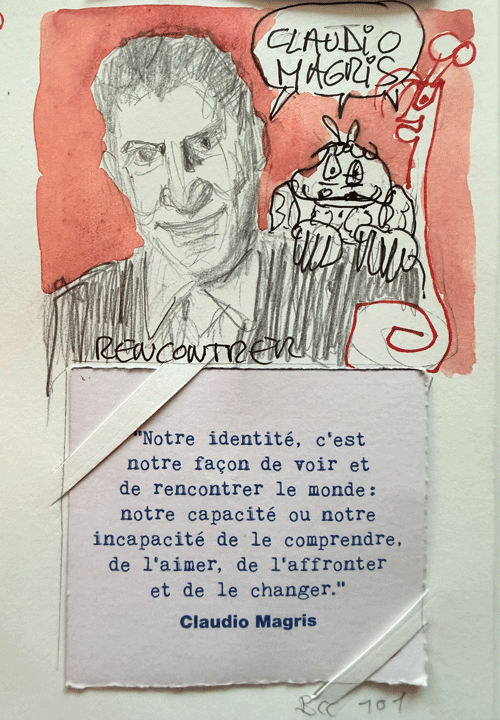 CLAUDIO
MAGRIS
RENCONTRER
"Notre identité, c'est
notre façon de voir et
de rencontrer le monde:
notre capacité ou notre
incapacité de le comprendre,
de l'aimer, de l'affronter
et de le changer."
Claudio Magris
101